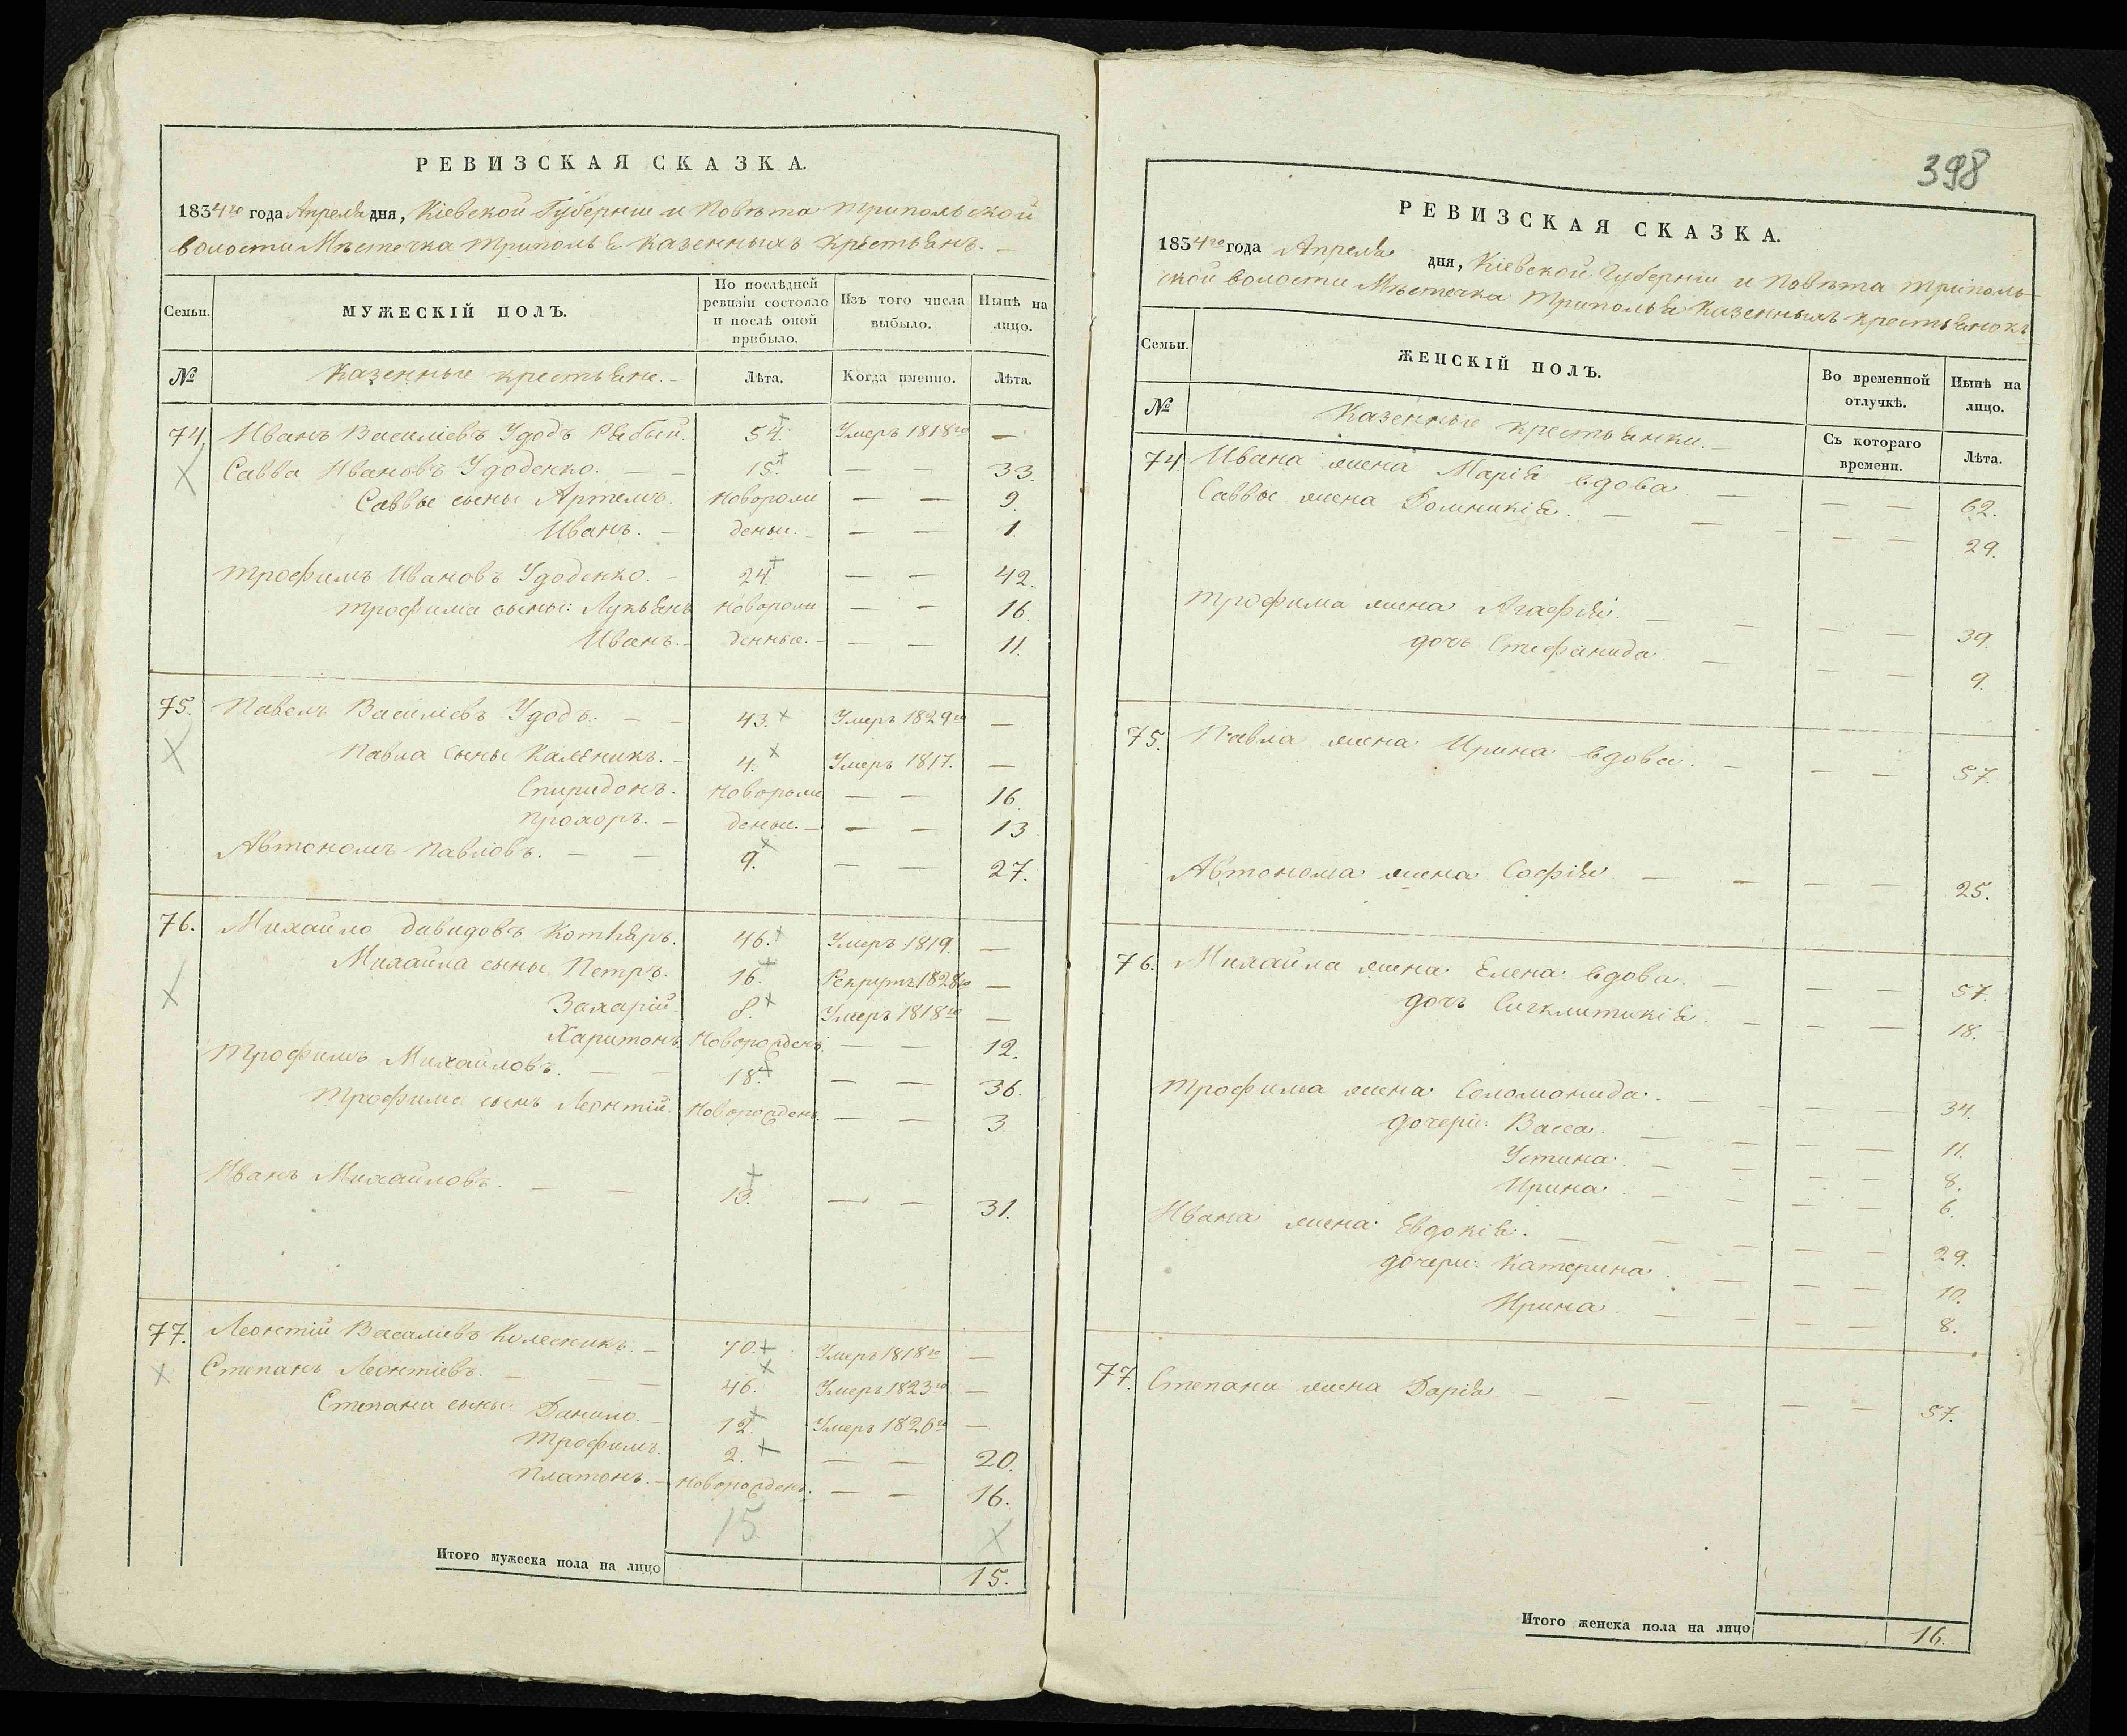 РЕВИЗСКАЯ СКАЗКА.
1834го года Апреля дня, Кіевской Губерніи и Повѣта Трипольской
волости Мѣстечка Триполья Казенныхъ крестьянъ.
Семьи.
МУЖЕСКІЙ ПОЛЪ.
По послѣдней ревизіи состояло и послѣ оной прибыло.
Изъ того числа выбыло.
Нынѣ на лицо.
№ Казенные крестьяне. Лѣта. Когда именно. Лѣта.
74. Иванъ Василіевъ Удодъ Рябый. 54. Умеръ 1818го —
Савва Ивановъ Удоденко. — — 15. — — 33.
Саввы сыны Артемъ. Новорож — — 9.
Иванъ. — деньи. — — — 1.
Трофимъ Ивановъ Удоденко. — 24. — — 42.
Трофима сыны: Лукьянъ Новорож — — 16.
Иванъ. — денные. — — — 11.
75. Павелъ Василіевъ Удодъ. — — 43. Умеръ 1829го —
Павла сыны Каленикъ. — 4. Умеръ 1817. —
Спиридонъ. Новорож — — 16.
Прохоръ. — деньи. — — — 13
Автономъ Павловъ. — — 9. — — 27.
76. Михайло Давидовъ Котляръ. 46. Умеръ 1819. —
Михайла сыны Петръ. 16. Рекрутъ 1828го —
Захарій 8. Умеръ 1818го —
Харитонъ. Новорожденъ. — — 12.
Трофимъ Михайловъ. — — 18. — — 36.
Трофима сынъ Леонтій. Новорожденъ. — — 3.
Иванъ Михайловъ. — — 13. — — 31.
77. Леонтій Василіевъ Колесникъ. — 70. Умеръ 1818го —
Степанъ Леонтіевъ. — — — 46. Умеръ 1823го —
Степана сыны: Данило. — 12. Умеръ 1826го —
Трофимъ. 2. — — 20.
Платонъ. — Новорожденъ. — — 16.
15
Итого мужеска пола на лицо 15.
398
РЕВИЗСКАЯ СКАЗКА.
1834го года Апреля дня, Кіевской Губерніи и Повѣта Триполь-
ской волости Мѣстечка Триполья Казенныхъ крестьянокъ
Семьи.
ЖЕНСКІЙ ПОЛЪ.
Во временной отлучкѣ.
Нынѣ на лицо.
№ Казенные крестьянки. Съ котораго времени. Лѣта.
74. Ивана жена Марія вдова. — — — 62.
Саввы жена Домникія. — — — — — 29.
Трофима жена Агафія. — — — — 39.
дочь Стефанида — — — 9.
75. Павла жена Ирина вдова. — — — 57.
Автонома жена Софія. — — — — 25.
76. Михайла жена Елена вдова. — — — 57.
дочь Сигклитикія. — — — 18.
Трофима жена Соломонида. — — — — 34.
дочери: Васса. — — — — 11.
Устина. — — — — 8.
Ирина. — — — — 6.
Ивана жена Евдокія. — — — — — 29.
дочери: Катерина. — — — — 10.
Ирина. — — — — 8.
77. Степана жена Дарія. — — — — — — 57.
Итого женска пола на лицо 16.